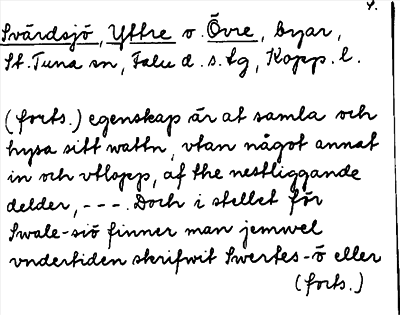 4.
Svärdsjö, Yttre o Övre, byar,
St. Tuna sn, Falu d. s. tg, Kopp. l.
(forts.) egenskap är at samla och
hysa sitt wattn, vtan något annat
in och vtlopp, af the nestliggande
delder, - - - . Doch i stellet för
Swale-siö finner man jemwel
vndertiden skrifwit Swertes-ö eller
(forts.)